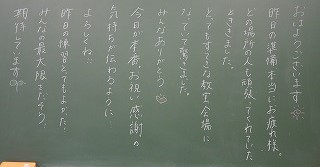 おはようございます
昨日の準備本当にお疲れ様。
どの場所の人も頑張ってくれていた
とききました。
とてもすてきな教室、会場に
なっていて驚きました。
みんなありがとう
今日が本番お祝い、感謝の
気持ちが伝わるように
よろしくね!!
昨日の練習とてもよかった。
みんなの最大限をだそう。
期待しています